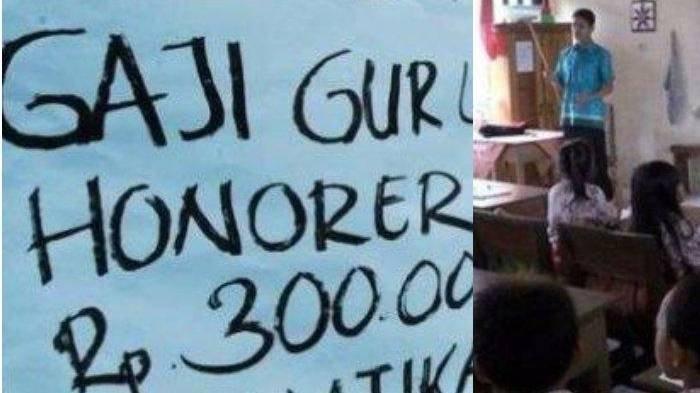 GAJI GURU
HONORER
Rp. 300.00